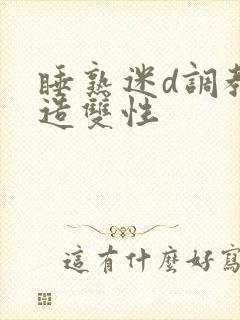 睡熟迷d調教
造雙性
這有什麼好寫